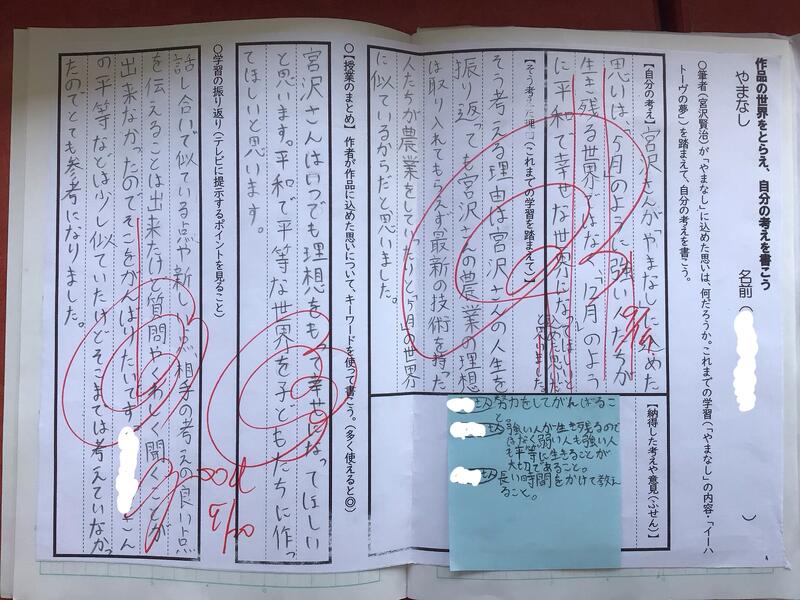 作品の世界をとらえ、自分の考えを書こう
やまなし
名前（　）
○筆者（宮沢賢治）が「やまなし」に込めた思いは、何だろうか。これまでの学習（「やまなし」の内容・「イーハ
トーヴの夢」）を踏まえて、自分の考えを書こう。
【自分の考え】宮沢さんが「やまなし」に込めた
思いは、「5月」のように強い人たちが
生き残る世界ではなく「12月」のよう
に平和で幸せな世界になってほしいと
と思いました。
【そう考えた理由（これまでの学習を踏まえて）】
そう考える理由は宮沢さんの人生を
振り返っても宮沢さんの農業の理想
は取り入れてもらえず最新の技術を持った
人たちが農業をしていたりと「5月」の世界
に似ているからだと思いました。
【納得した考えや意見（ふせん）】
努力をしてがんばるこ
と
強い人が生き残るので
はなく弱い人も強い人
も平等に生きることが
大切であること。
長い時間をかけて教え
ること。
○【授業のまとめ】作者が作品に込めた思いについて、キーワードを使って書こう。（多く使えると◎）
宮沢さんはいつでも理想をもって幸せになってほしい
と思います。平和で平等な世界を子どもたちに作っ
てほしいと思います。
○学習の振り返り（テレビに提示するポイントを見ること）
話し合いで似ている点や新しい点、相手の考えの良い点
を伝えることは出来たけど質問やくわしく聞くことが
出来なかったのでそこをがんばりたいです。さん
の平等などは少し似ていたけどそこまでは考えていなかっ
たのでとても参考になりました。